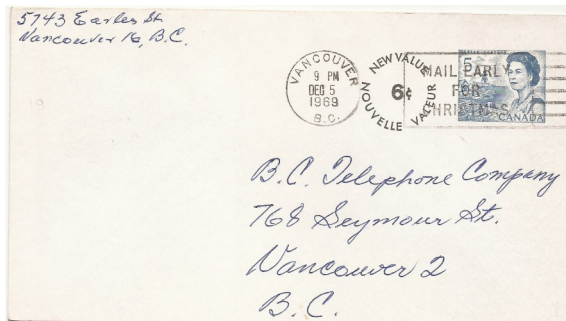 5743 Earles St.
Vancouver 16, B.C.
VANCOUVER
9 PM
DEC 5
1969
B.C.
NEW VALUE
6¢
NOUVELLE VALEUR
MAIL EARLY
FOR
CHRISTMAS
5
CANADA
B.C. Telephone Company
768 Seymour St.
Vancouver 2
B.C.